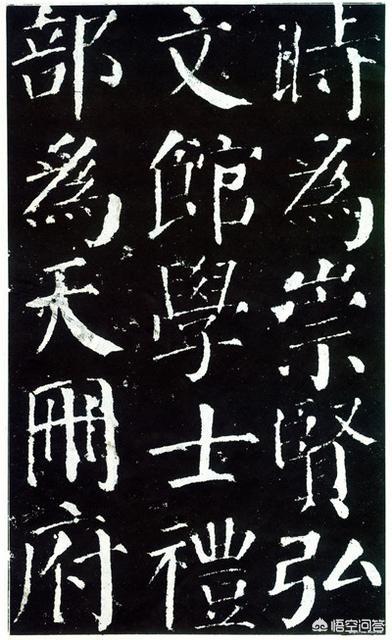 時為崇賢弘
文館學士禮
部為天冊府
悟空问答